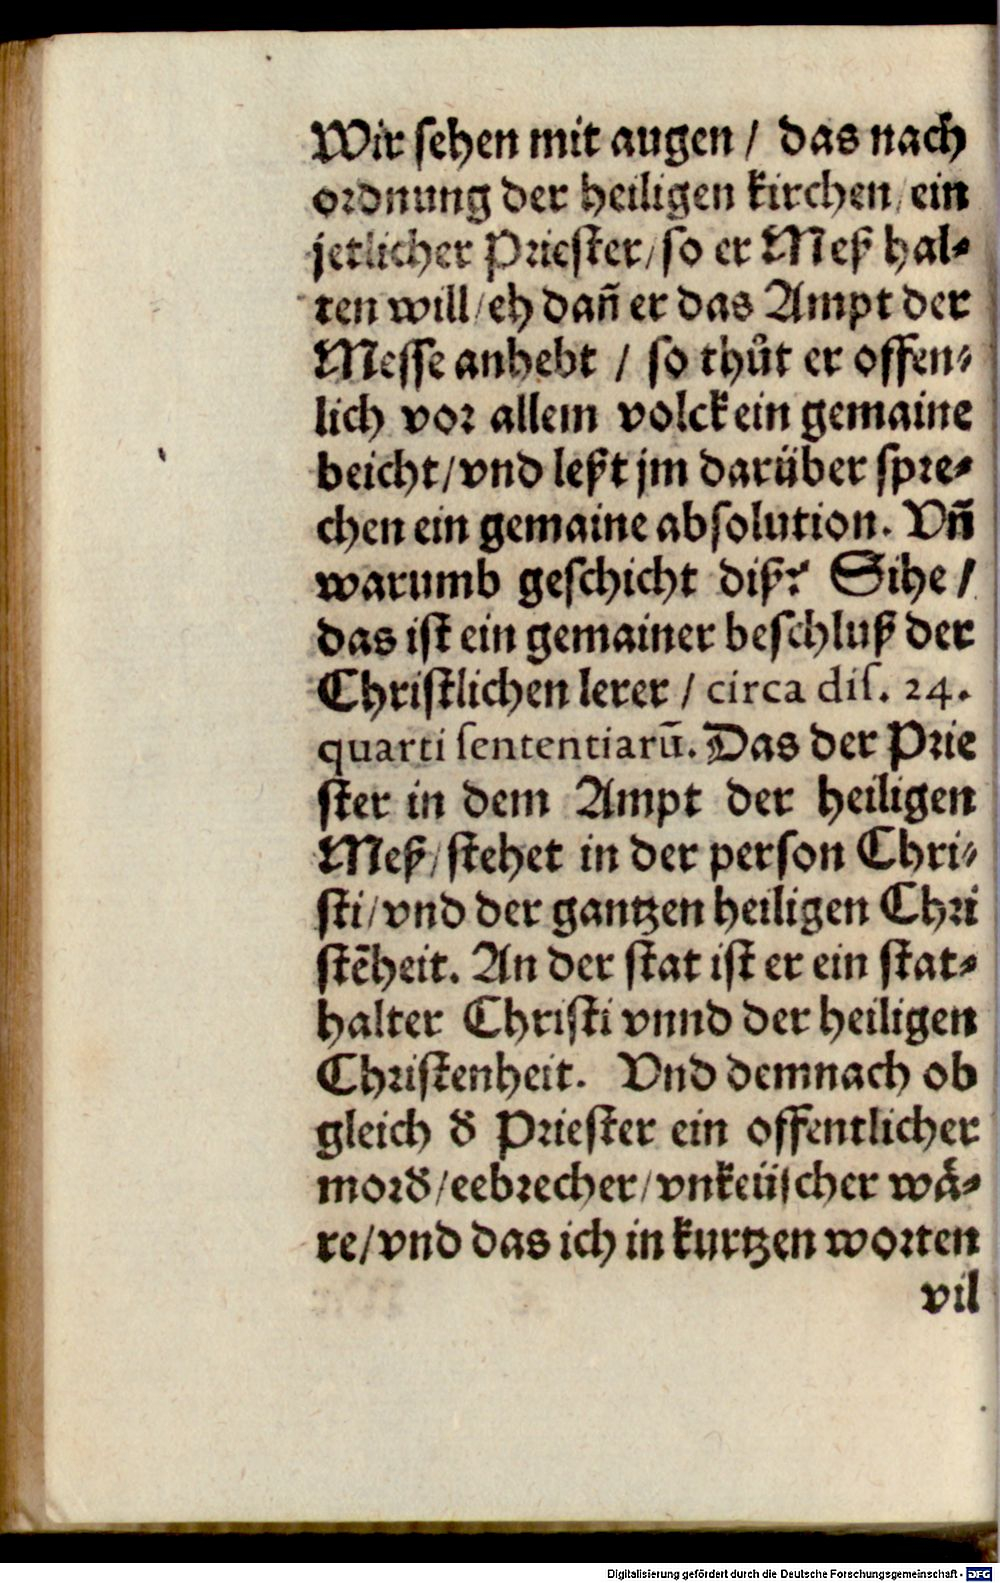 Wir sehen mit augen / das nach
ordnung der heiligen kirchen / ein
jetlicher Priester / so er Meß hal⸗
ten will / eh dañ er das Ampt der
Messe anhebt / so thůt er offen⸗
lich vor allem volck ein gemaine
beicht / vnd leßt jm darüber spre⸗
chen ein gemaine absolution. Vñ
warumb geschicht diß? Sihe /
das ist ein gemainer beschluß der
Christlichen lerer / circa dis. 24.
quarti sententiarū. Das der Prie
ster in dem Ampt der heiligen
Meß / stehet in der person Chri⸗
sti / vnd der gantzen heiligen Chri
stēheit. An der stat ist er ein stat⸗
halter Christi vnnd der heiligen
Christenheit. Vnd demnach ob
gleich d̄ Priester ein offentlicher
mord̄ / eebrecher / vnkeüscher wå⸗
re / vnd das ich in kurtzen worten
vil
Digitalisierung gefördert durch die Deutsche Forschungsgemeinschaft - DFG